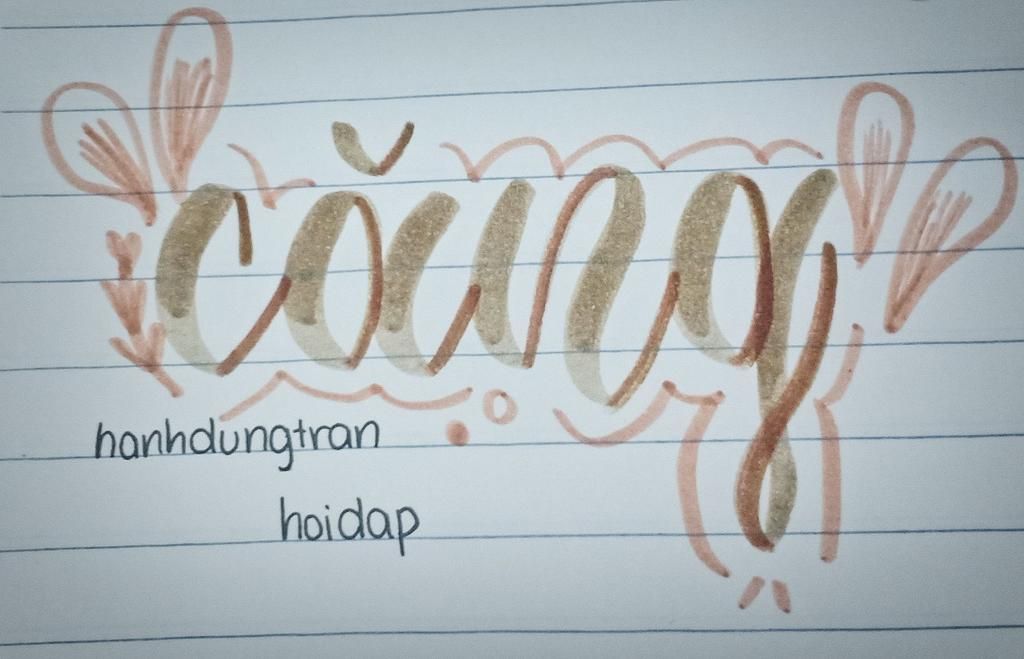 căng
hanhdungtran
hoidap